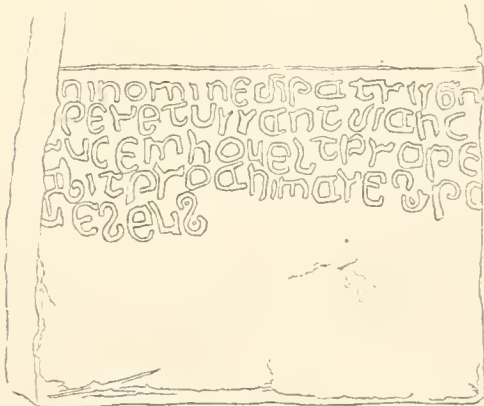 ninominedipatris
peretussantdianc
ucemhoueltprope
bitproanimarespa
eseus